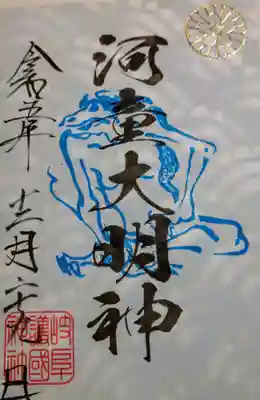 河童大明神
令和五年
十二月二十九日
岐阜
護國
神社